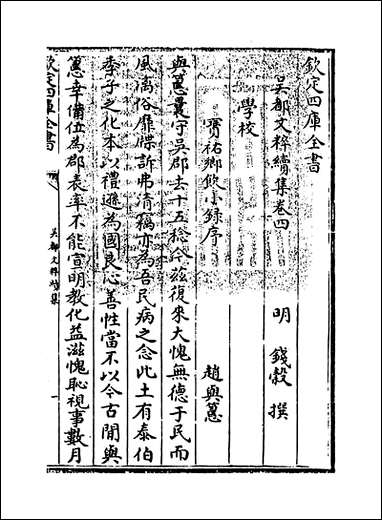 欽定四庫全書
吳都文粹續集卷四
明 錢榖 撰
學校
寶祐鄉飲小錄序
趙與𥲅
與𥲅曩守吳郡去十五稔今兹復來大愧無德于民而
風漓俗靡牒訴弗清稱亦為吾民病之念此土有泰伯
季子之化本以禮遜為國良心善性當不以今古閒與
𥲅幸備位為郡表率不能宣明教化益滋愧恥視事數月
欽定四庫全書
吳都文粹續集
一